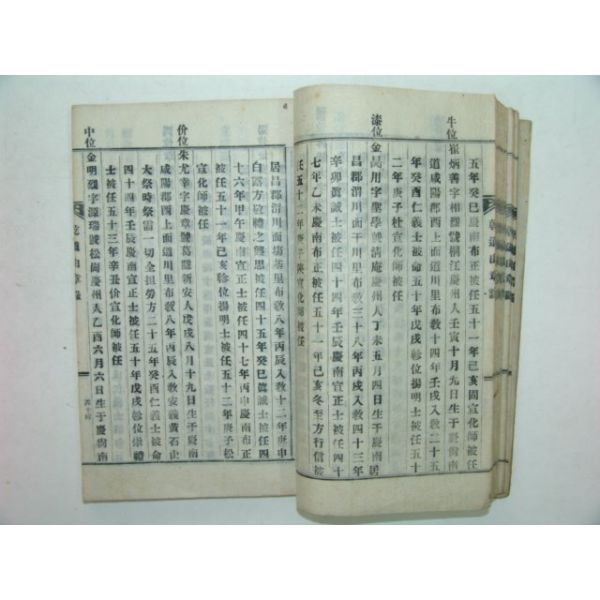 五年癸巳慶南布正被任五十一年己亥固宣化師被任
牛位崔炳善字相 號桐江慶州人壬寅十月九日生于慶尙南
道咸陽郡西上面道川里布敎十四年壬戌入敎二十五
年癸酉仁義士被命五十年戊戌 位揚明士被任五十
二年庚子杜宣化師被任
漆位金 用字聖學號淸庵慶州人丁未五月四日生于慶尙南居
昌郡渭川面 川里布敎三十八年丙戌入敎四十三年
辛卯眞誠士被任四十四年壬辰慶南宣正士被任四十
七年乙未慶南布正被任五十一年己亥冬至方行信被
任五十二年庚子 宣化師被任
居昌郡渭川面 基里布敎八年丙辰入敎十二年庚申
白露方 禮之 思被任四十五年癸巳眞誠士被任四
十六年甲午慶南宣正士被任四十七年丙申慶南布正
士被任五十一年己亥 位揚明士被任五十二年庚子松
宣化師被任
价位朱尤宰字慶章號葛 新安人戊戌八月十九日生于慶南
咸陽郡西上面道川里布敎八年丙辰入敎安義黃石山
大祭時祭需一切全担勞方二十五年癸酉仁義士被命
四十四年壬辰慶南宣正士被任五十年戊戌 位 禮
士被任五十三年辛丑价宣化師被任
中位金明 字源瑞號松岡慶州人乙酉六月六日生于慶尙南